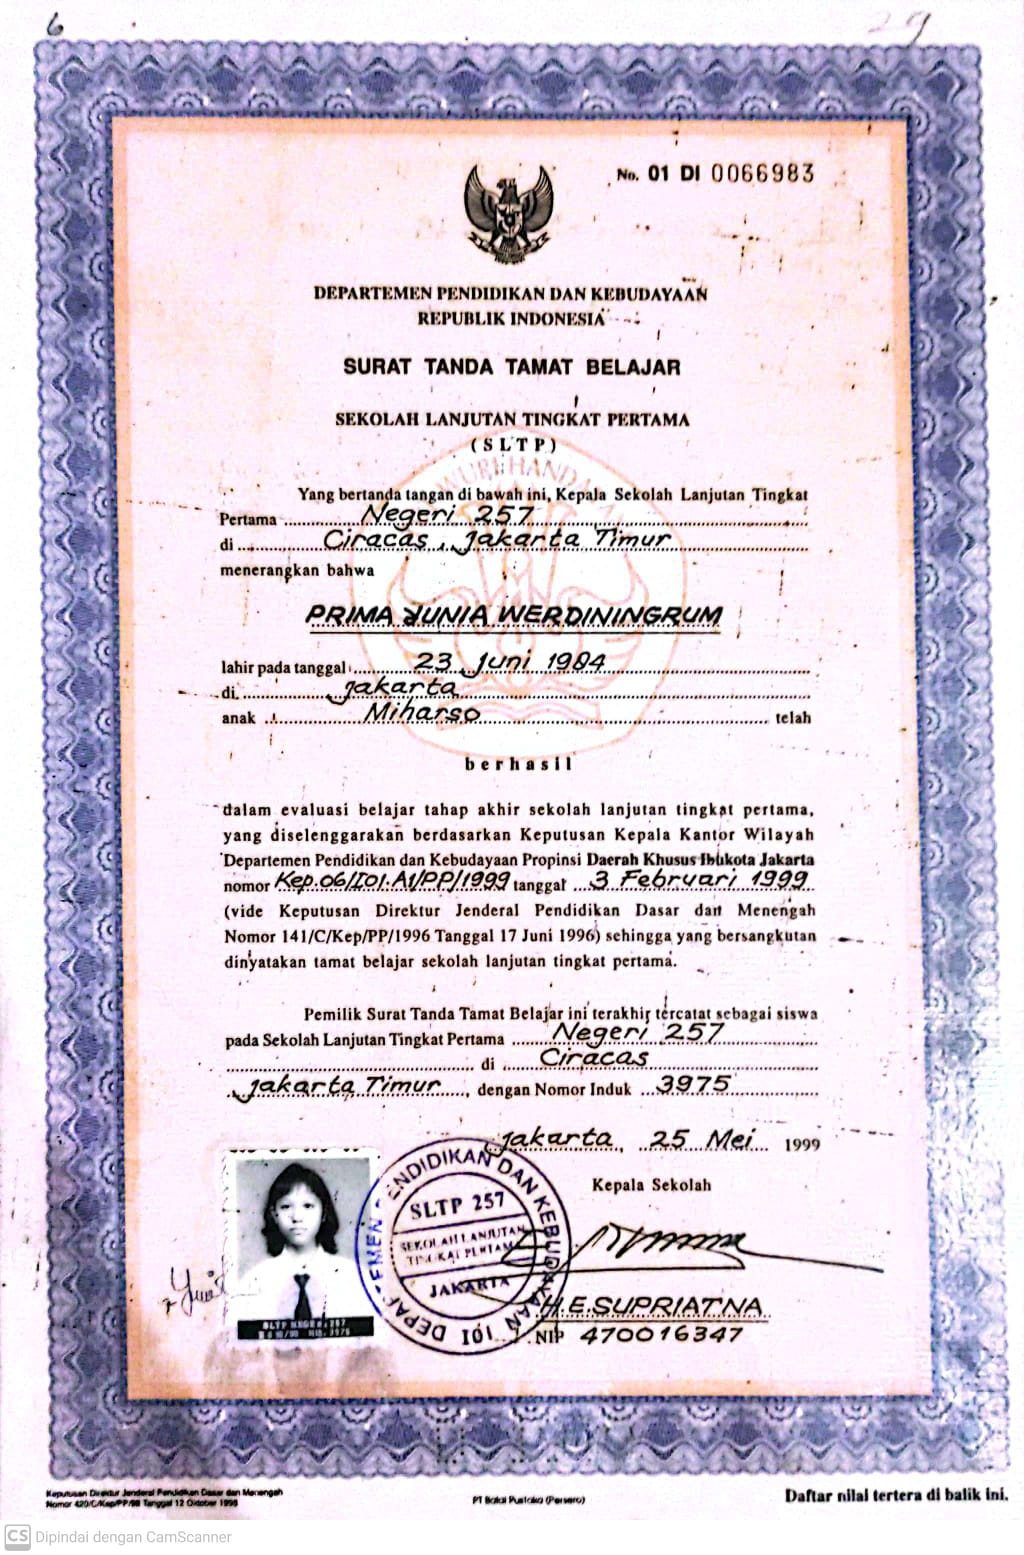 6
29
No. 01 DI 0066983
DEPARTEMEN PENDIDIKAN DAN KEBUDAYAAN
REPUBLIK INDONESIA
SURAT TANDA TAMAT BELAJAR
SEKOLAH LANJUTAN TINGKAT PERTAMA
(SLTP)
Yang bertanda tangan di bawah ini, Kepala Sekolah Lanjutan Tingkat
Pertama Negeri 257
di Ciracas, Jakarta Timur
menerangkan bahwa
PRIMA JUNIA WERDININGRUM
lahir pada tanggal 23 Juni 1984
di Jakarta
anak Miharso telah
berhasil
dalam evaluasi belajar tahap akhir sekolah lanjutan tingkat pertama,
yang diselenggarakan berdasarkan Keputusan Kepala Kantor Wilayah
Departemen Pendidikan dan Kebudayaan Propinsi Daerah Khusus Ibukota Jakarta
nomor Kep.06/I01.A1/PP/1999 tanggal 3 Februari 1999
(vide Keputusan Direktur Jenderal Pendidikan Dasar dan Menengah
Nomor 141/C/Kep/PP/1996 Tanggal 17 Juni 1996) sehingga yang bersangkutan
dinyatakan tamat belajar sekolah lanjutan tingkat pertama.
Pemilik Surat Tanda Tamat Belajar ini terakhir tercatat sebagai siswa
pada Sekolah Lanjutan Tingkat Pertama Negeri 257
di Ciracas
Jakarta Timur, dengan Nomor Induk 3975
Jakarta, 25 Mei 1999
Kepala Sekolah
DEPARTEMEN PENDIDIKAN DAN KEBUDAYAAN I01
SLTP 257
SEKOLAH LANJUTAN
TINGKAT PERTAMA
JAKARTA
H.E.SUPRIATNA
NIP 470016347
Keputusan Direktur Jenderal Pendidikan Dasar dan Menengah
Tanggal 12 Oktober 1998
PT Balai Pustaka (Persero)
Daftar nilai tertera di balik ini.
CS Dipindai dengan CamScanner